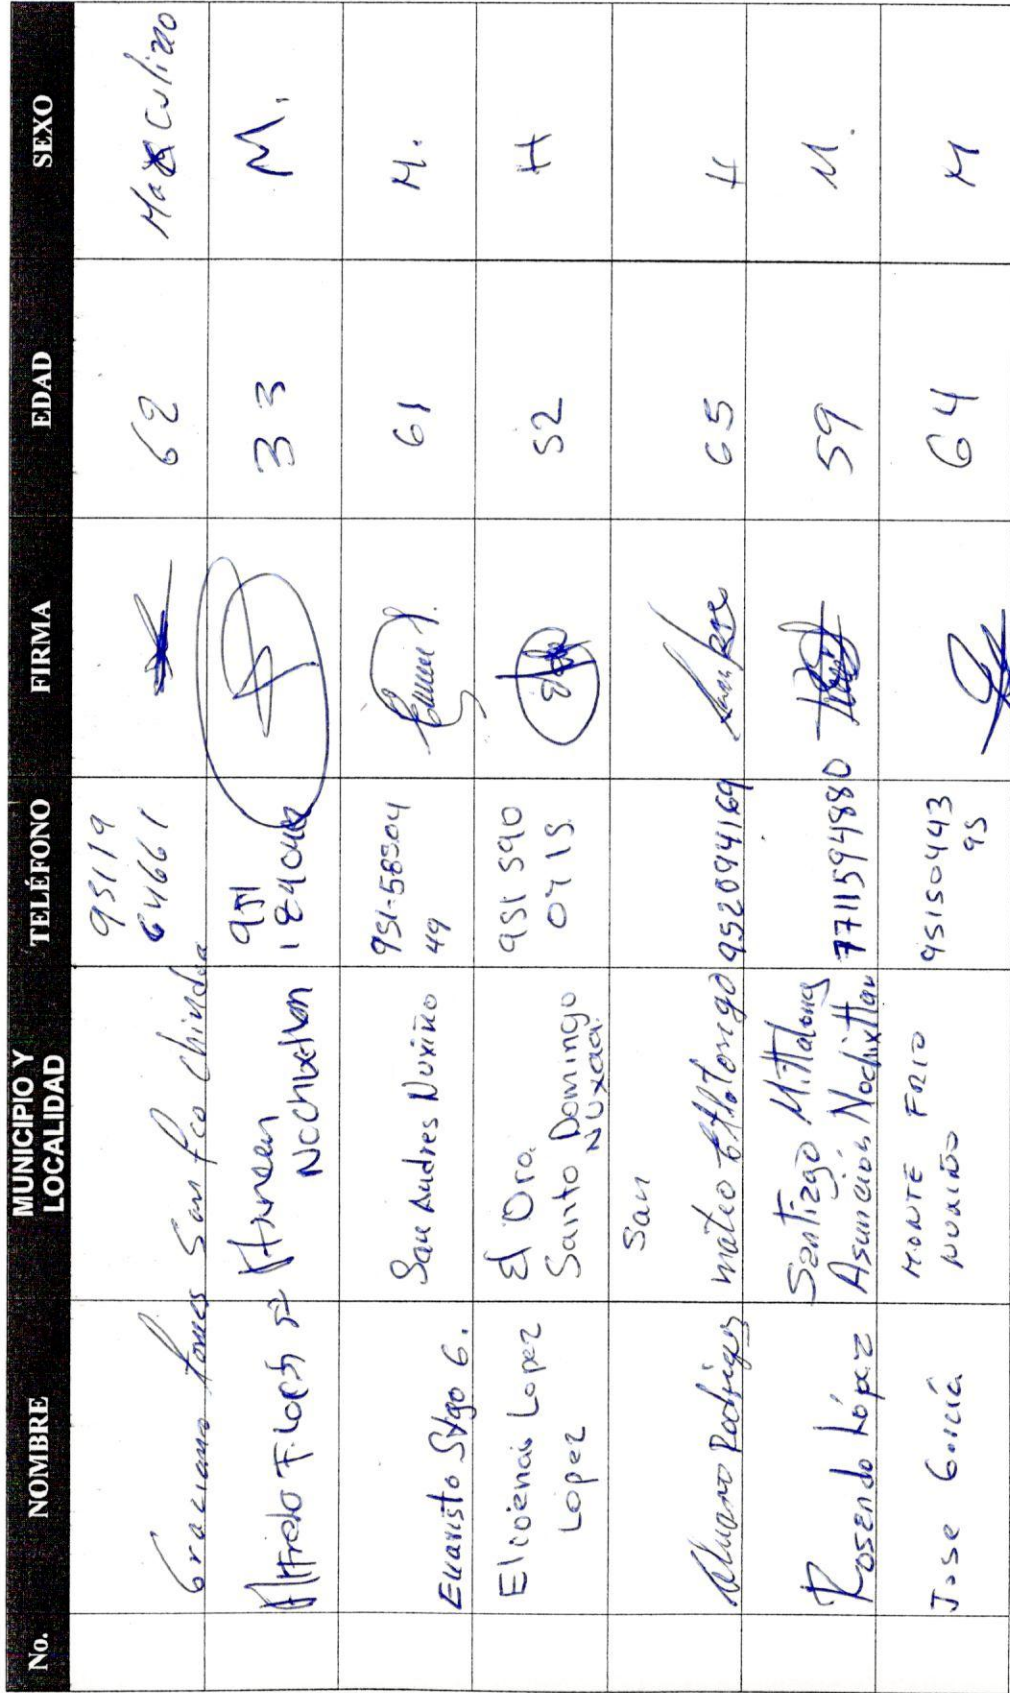 No. NOMBRE MUNICIPIO Y LOCALIDAD TELÉFONO FIRMA EDAD SEXO
Graciano Torres San Fco Chindua 95119 64661 62 Masculino
Alfredo Flores Nochixtlan 951 33 M.
Evaristo Stgo G. San Andres Nuxiño 951-58504 49 61 M.
López El Oro. Santo Domingo Nuxaá. 951 590 0715 52 H
Lopez
Alvaro Rodriguez San mateo Etlatongo 9520944169 65 H
Rosendo López Santiago Mitlatong Asunción, Nochixtlan 7711594880 59 M.
Jose Garcia MONTE FRIO NUXIÑO 95150443 95 64 M